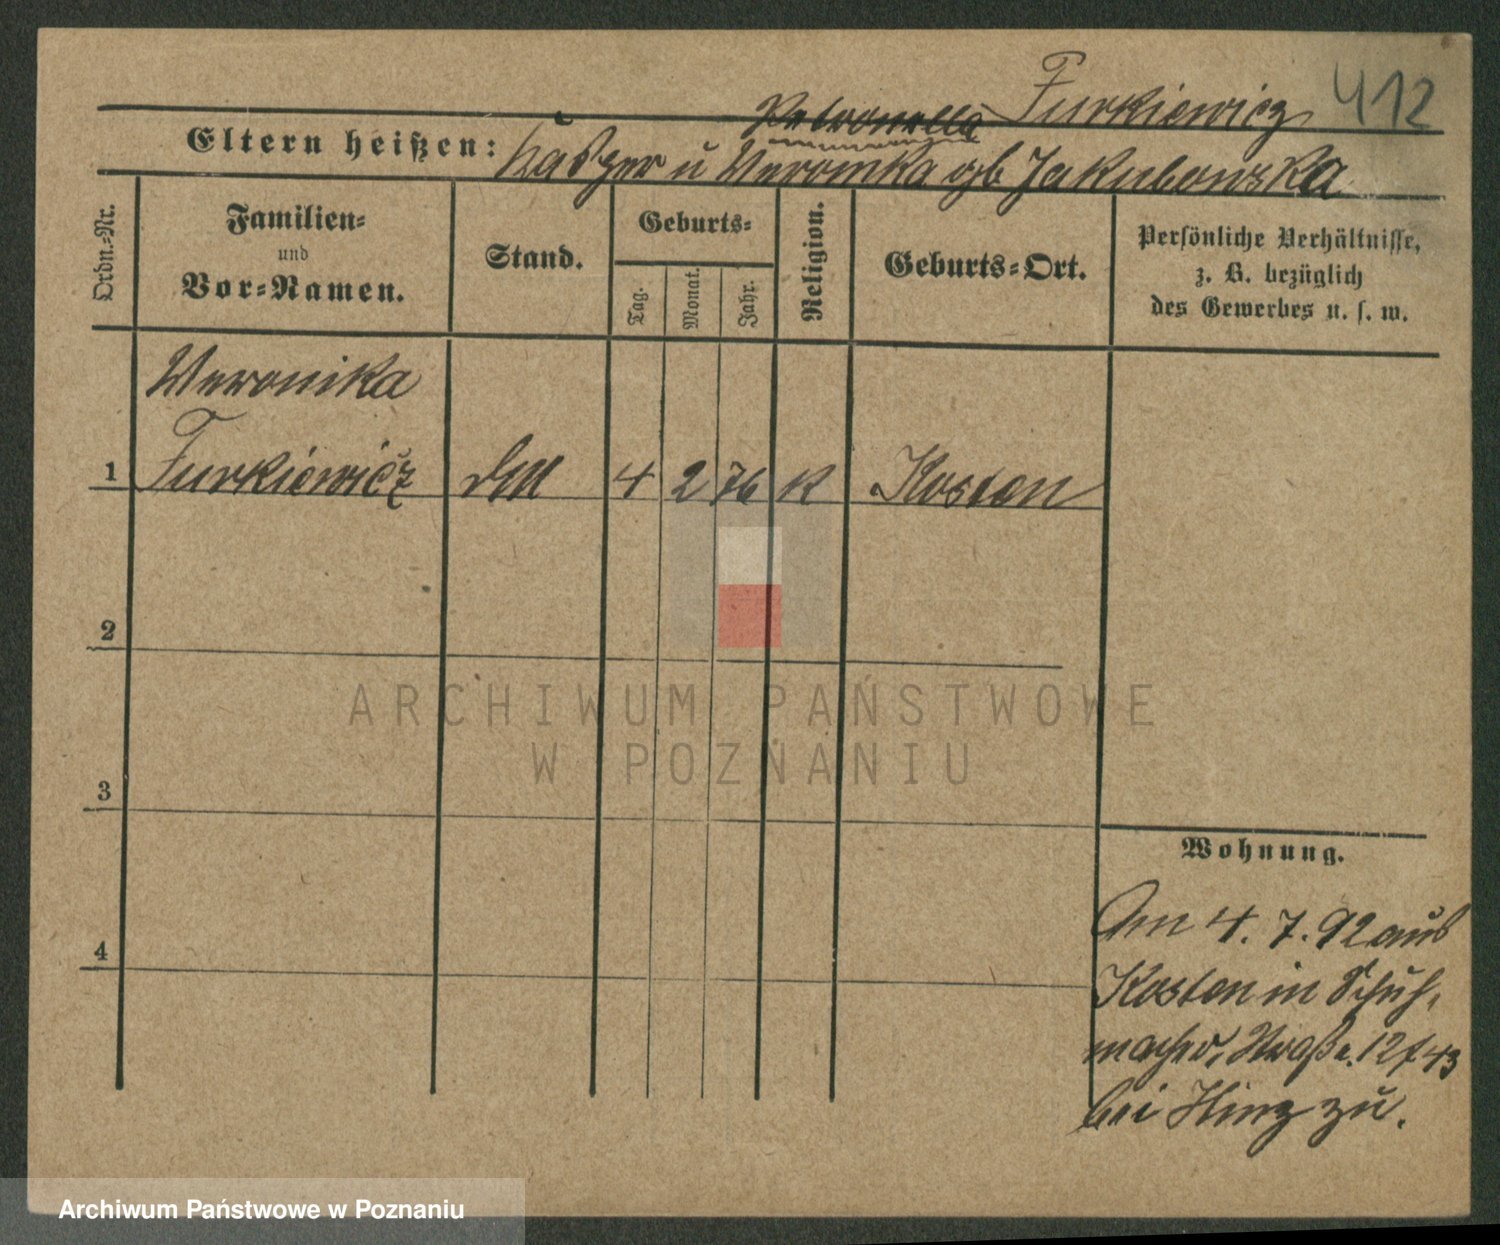 Furkiewicz 412
Petronella
Eltern heißen: Kasper u Veronika gb Jakubowska
Ordn.-Nr.
Familien-
und
Vor-Namen.
Stand.
Geburts-
Tag.
Monat.
Jahr.
Religion.
Geburts-Ort.
Persönliche Verhältnisse,
z. B. bezüglich
des Gewerbes u. s. w.
Veronika
1 Furkiewicz 4 2 76 K Kosten
2
3
4
Wohnung.
Am 4. 7. 92 aus
Kosten in Schuh-
macher, Straße. 12 / 43
bei Hinz zu.
ARCHIWUM PAŃSTWOWE
W POZNANIU
Archiwum Państwowe w Poznaniu